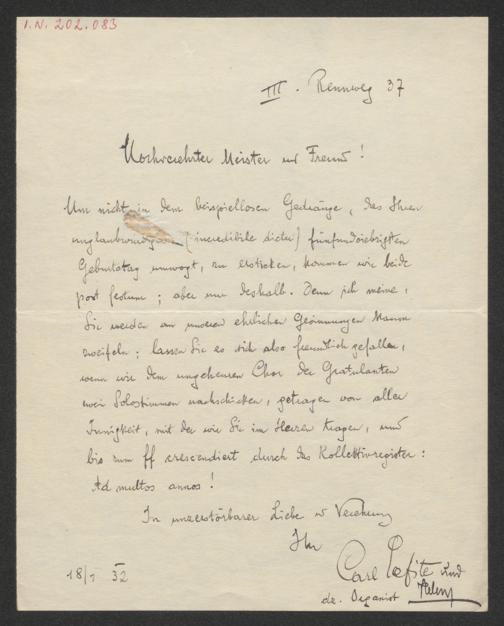 I.N. 202.083
III. Rennweg 37
Hochverehrter Meister und Freund!
Um nicht in dem beispiellosen Gedränge, das Ihren
unglaubwürdigen (incredibile dictu) fünfundsiebzigsten
Geburtstag umwogt, zu ersticken, kommen wir beide
post festum; aber nur deshalb. Denn ich meine,
Sie werden an unseren ehrlichen Gesinnungen kaum
zweifeln; lassen Sie es sich also freundlich gefallen,
wenn wir dem ungeheuren Chor der Gratulanten
zwei Solostimmen nachschicken, getragen von aller
Innigkeit, mit der wir Sie im Herzen tragen, und
bis zum ff crescendiert durch das Kollektivregister:
Ad multos annos!
In unzerstörbarer Liebe u Verehrung
Ihr
Carl Lafite und
dz. Organist
18/I 32